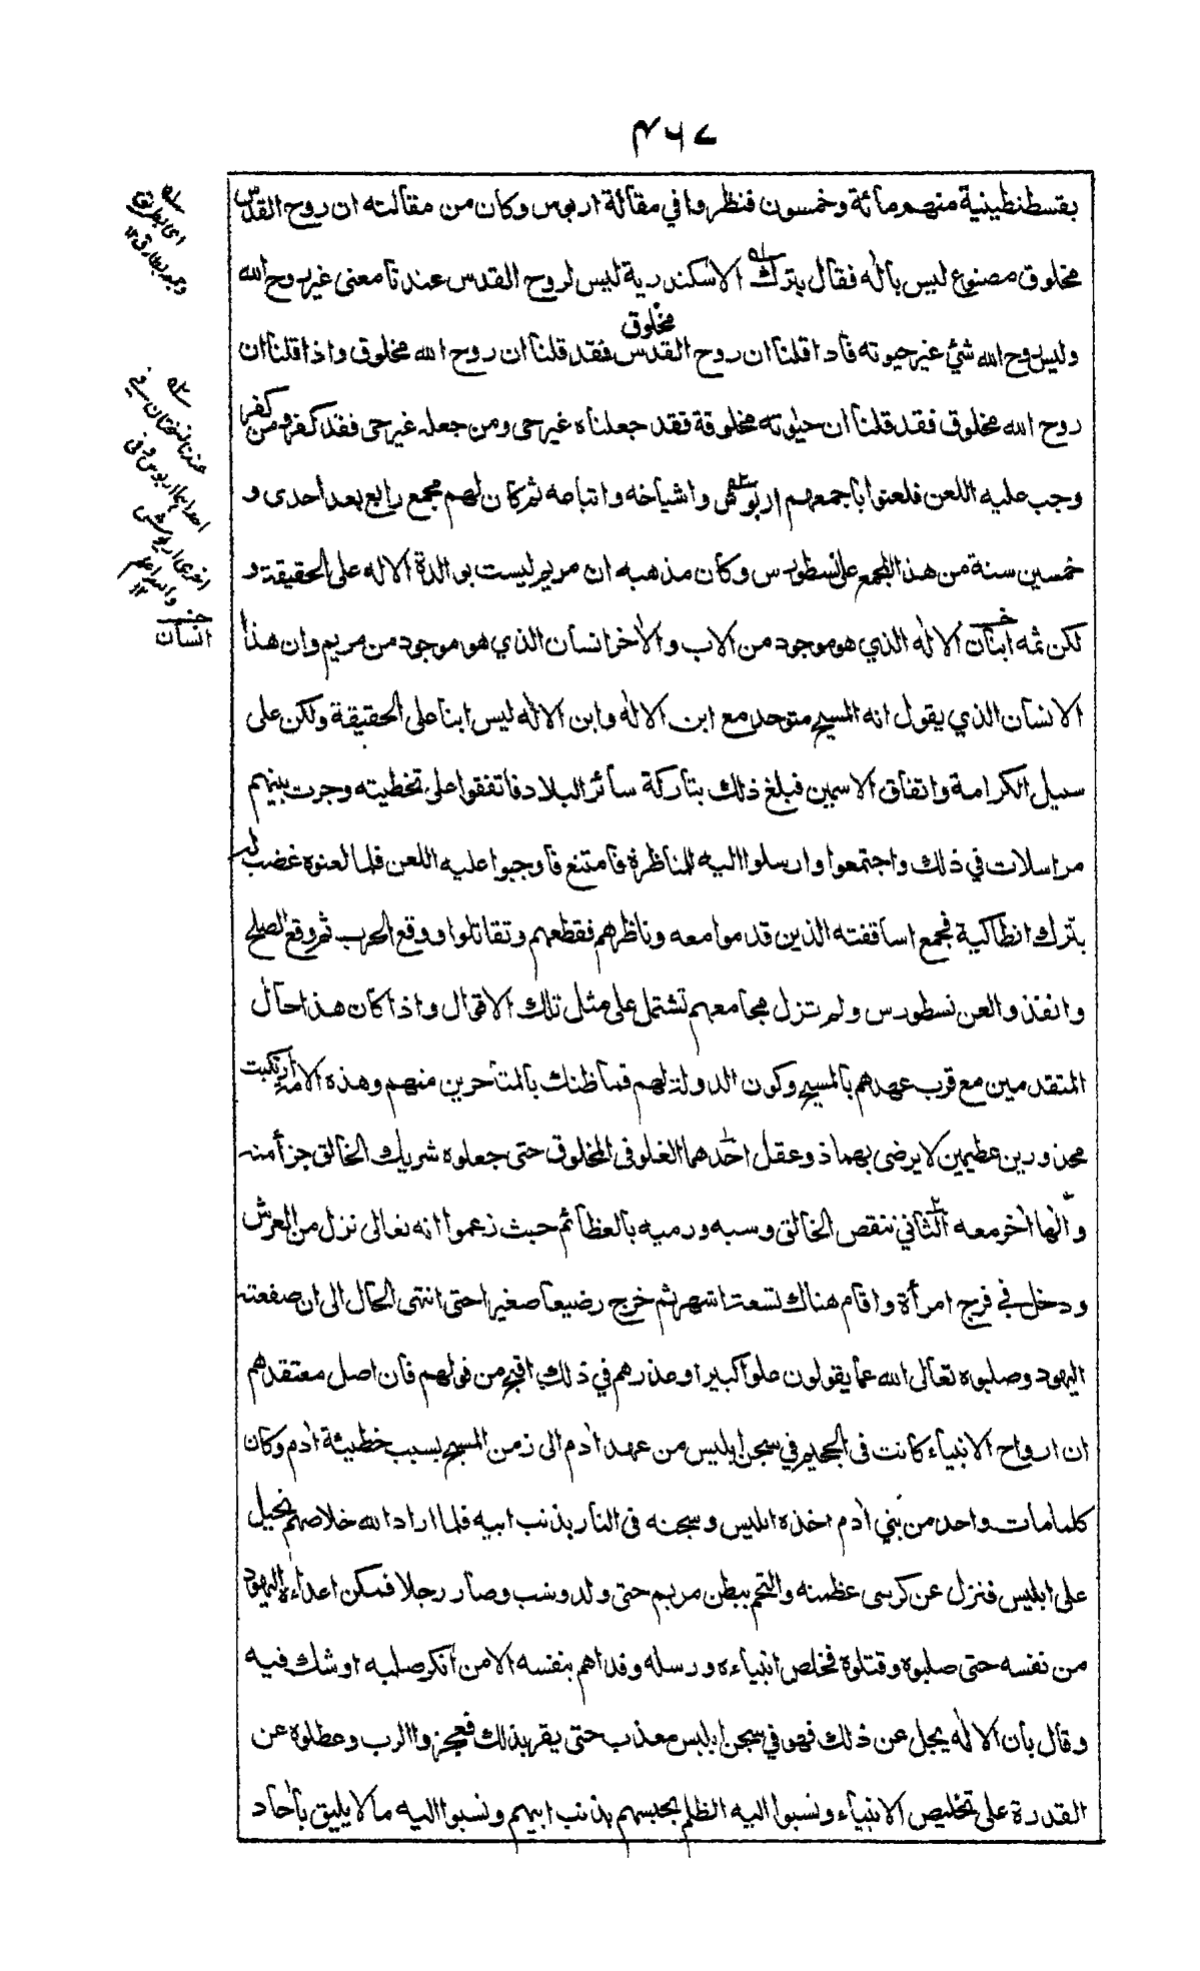 ۴۶۷
بقسطنطينية منهم مائة وخمسون فنظروا في مقالة اريوس وكان من مقالته ان روح القدس
مخلوق مصنوع ليس باله فقال بترك الاسكندرية ليس لروح القدس عندنا معنى غير روح الله
وليس روح الله شئ غير حيوته فاذا قلنا ان روح القدس مخلوق فقد قلنا ان روح الله مخلوق واذا قلنا ان
روح الله مخلوق فقد قلنا ان حيوته مخلوقة فقد جعلناه غير حى ومن جعله غير حى فقد كفر ومن كفر
وجب عليه اللعن فلعنوا باجمعهم اريوش واشياخه واتباعه ثم كان لهم مجمع رابع بعد احدى و
خمسين سنة من هذا المجمع على نسطورس وكان مذهبه ان مريم ليست بوالدة الاله على الحقيقة و
لكن ثمه ابنان الاله الذي هو موجود من الاب والاخر انسان الذي هو موجود من مريم وان هذا
الانسان الذي يقول انه المسيح متوحد مع ابن الاله وابن الاله ليس ابنا على الحقيقة ولكن على
سبيل الكرامة واتفاق الاسمين فبلغ ذلك بتاركة سائر البلاد فاتفقوا على تخطيته وجرت بينهم
مراسلات في ذلك واجتمعوا وارسلوا اليه للمناظرة فامتنع فاوجبوا عليه اللعن فلما لعنوه غضب له
بترك انطاكية فجمع اساقفته الذين قدموا معه وناظرهم فقطعهم وتقاتلوا ووقع الحرب ثم وقع الصلح
وانفذوا لعن نسطورس ولم تزل مجامعهم تشتمل على مثل تلك الاقوال واذا كان هذا حال
المتقدمين مع قرب عهدهم بالمسيح وكون الدولة لهم فما ظنك بالمتأخرين منهم وهذه الامة ارتكبت
محذورين عظيمين لا يرضى بهما ذو عقل احدهما الغلو فى المخلوق حتى جعلوه شريك الخالق جزأ منه
والها اخر معه الثاني تنقص الخالق وسبه ورميه بالعظائم حيث زعموا انه تعالى نزل من العرش
ودخل في فرج امرأة واقام هناك تسعة اشهر ثم خرج رضيعا صغيرا حتى انتهى الحال الى ان صفعته
اليهود وصلبوه تعالى الله عما يقولون علوا كبيرا وعذرهم في ذلك اقبح من قولهم فان اصل معتقدهم
ان ارواح الانبياء كانت فى الجحيم في سجن ابليس من عهد ادم الى زمن المسيح بسبب خطيئة ادم وكان
كلما مات واحد من بني ادم اخذه ابليس وسجنه فى النار بذنب ابيه فلما اراد الله خلاصهم تحيل
على ابليس فنزل عن كرسى عظمته والتحم ببطن مريم حتى ولد وشب وصار رجلا فمكن اعداءه اليهود
من نفسه حتى صلبوه وقتلوه فخلص انبياءه ورسله وفداهم بنفسه الا من انكر صلبه او شك فيه
وقال بان الاله يجل عن ذلك فهو في سجن ابليس معذب حتى يقر بذلك فعجزوا الرب وعطلوه عن
القدرة على تخليص الانبياء ونسبوا اليه الظلم بحبسهم بذنب ابيهم ونسبوا اليه ما لا يليق باحاد
انسان